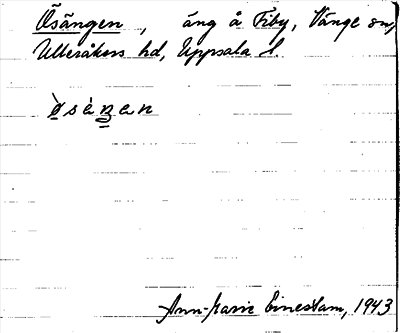 Ösängen, äng å Fiby, Vänge sn,
Ulleråkers hd, Uppsala l.
Ann-Marie
1943